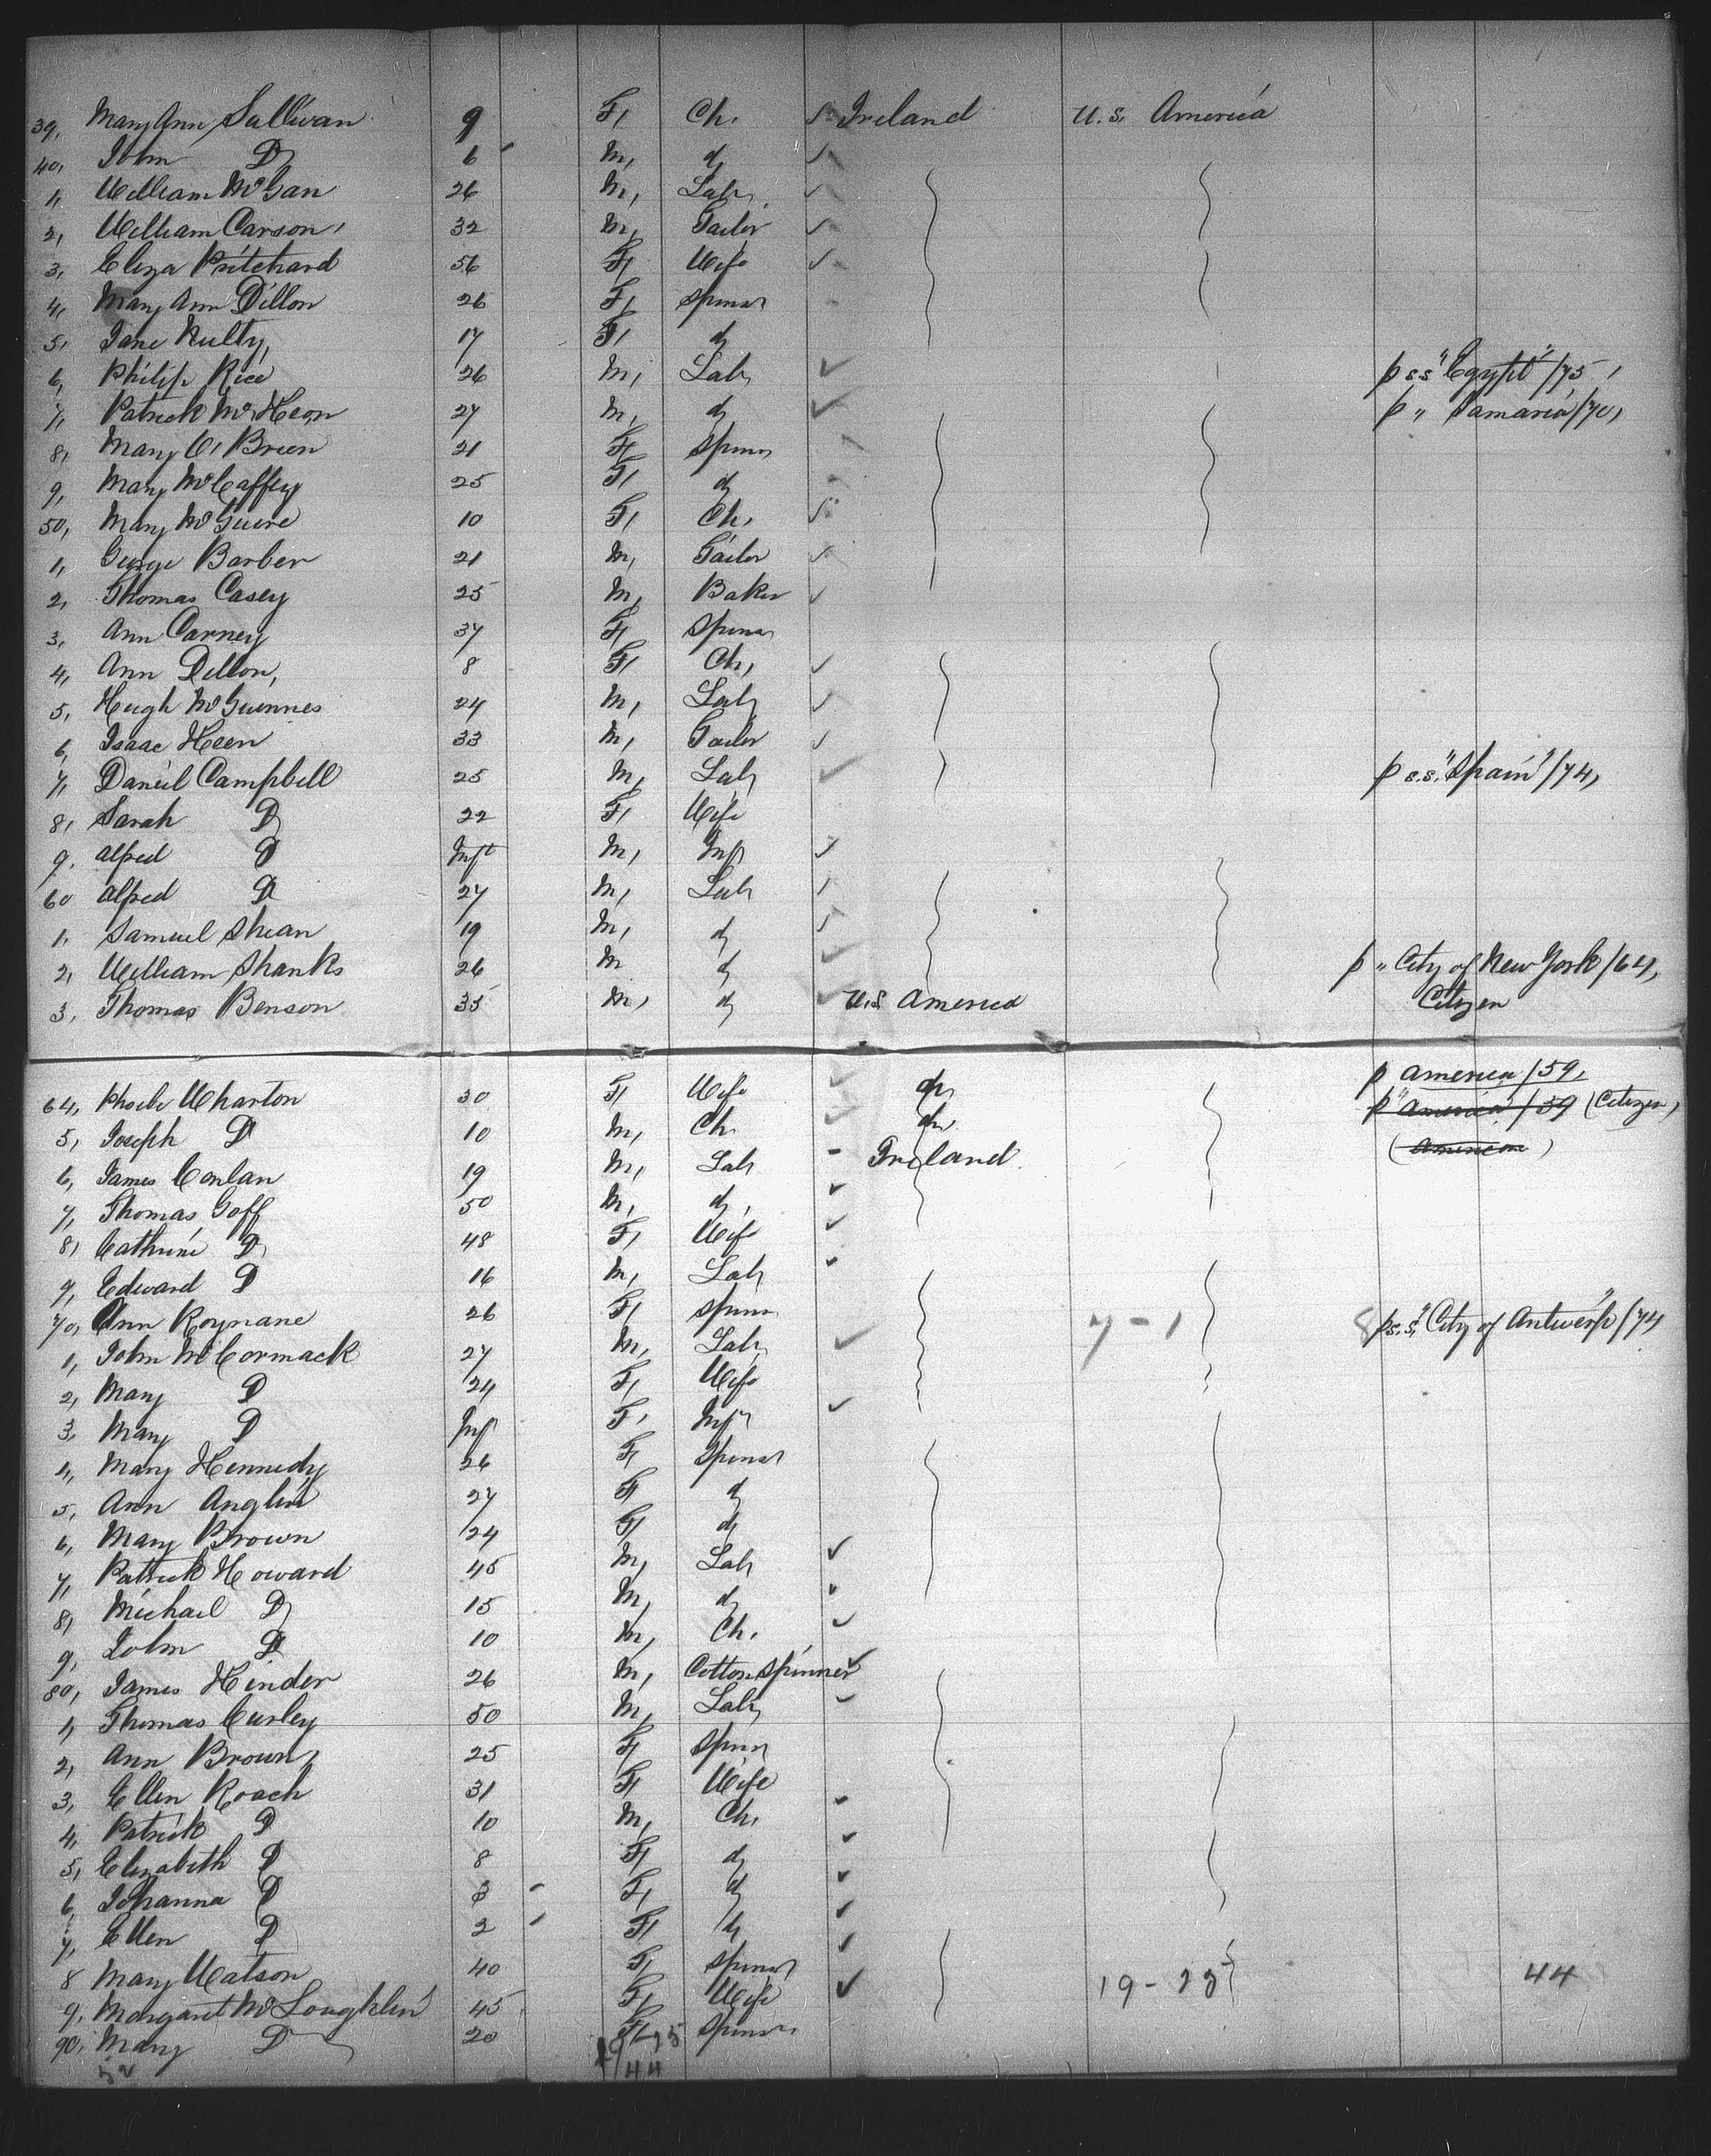 39, Mary Ann Sullivan 9 F, Ch, Ireland U.S. America
40, John D 6 M, d
1, William McGan 26 M, Lab,
2, William Carson, 32 M, Tailor
3, Eliza Pritchard 56 F, Wife
4, Mary Ann Dillon 26 F, Spinsr
5, Jane Nulty, 17 F, d
6, Philip Rice 26 M, Lab, p s.s. "Egypt" /75,
7, Patrick McKeon 27 M, d p " Samaria /70,
8, Mary O'Brien 21 F, Spinsr
9, Mary McCaffey 25 F, d
50, Mary McGuire 10 F, Ch,
1, George Barber 21 M, Tailor
2, Thomas Casey 25 M, Baker
3, Ann Carney 37 F, Spinsr
4, Ann Dillon, 8 F, Ch,
5, Hugh McGuinnes 24 M, Lab,
6, Isaac Keen 33 M, Tailor
7, Daniel Campbell 25 M, Lab, p s.s. "Spain" /74,
8, Sarah D 22 F, Wife
9, Alfred D Inft M, Inf
60 Alfred D 27 M, Lab,
1, Samuel Shean 19 M, d
2, William Shanks 26 M d p " City of New York /64,
3, Thomas Benson 35 M, d U.S. America Citizen
p America /59,
64, Phoebe Wharton 30 F, Wife do p "America" /59 (Citizen)
5, Joseph D 10 M, Ch. do (American)
6, James Conlan 19 M, Lab Ireland
7, Thomas Goff 50 M, d,
8, Cathrine D 48 F, Wife
9, Edward D 16 M, Lab,
70, Ann Roynane 26 F, Spinsr 7-1 p s.s. "City of Antwerp" /74
1, John McCormack 27 M, Lab,
2, Mary D 24 F, Wife
3, Mary D Inf F, Inf
4, Mary Kennedy 26 F, Spinsr
5, Ann Anglin 27 F, d
6, Mary Brown 24 F, d
7, Patrick Howard 45 M, Lab
8, Michael D 15 M, d
9, John D 10 M, Ch.
80, James Hinder 26 M, Cotton Spinner
1, Thomas Curley 50 M, Lab,
2, Ann Brown, 25 F, Spinsr
3, Ellen Roach 31 F, Wife
4, Patrick D 10 M, Ch,
5, Elizabeth D 8 F, d
6, Johanna D 3 F, d
7, Ellen D 2 F, d
8 Mary Watson 40 F, Spinsr 19-25 44
9, Margaret McLoughlin 45 F, Wife
90, Mary D 20 F, Spinsr
19-25
44